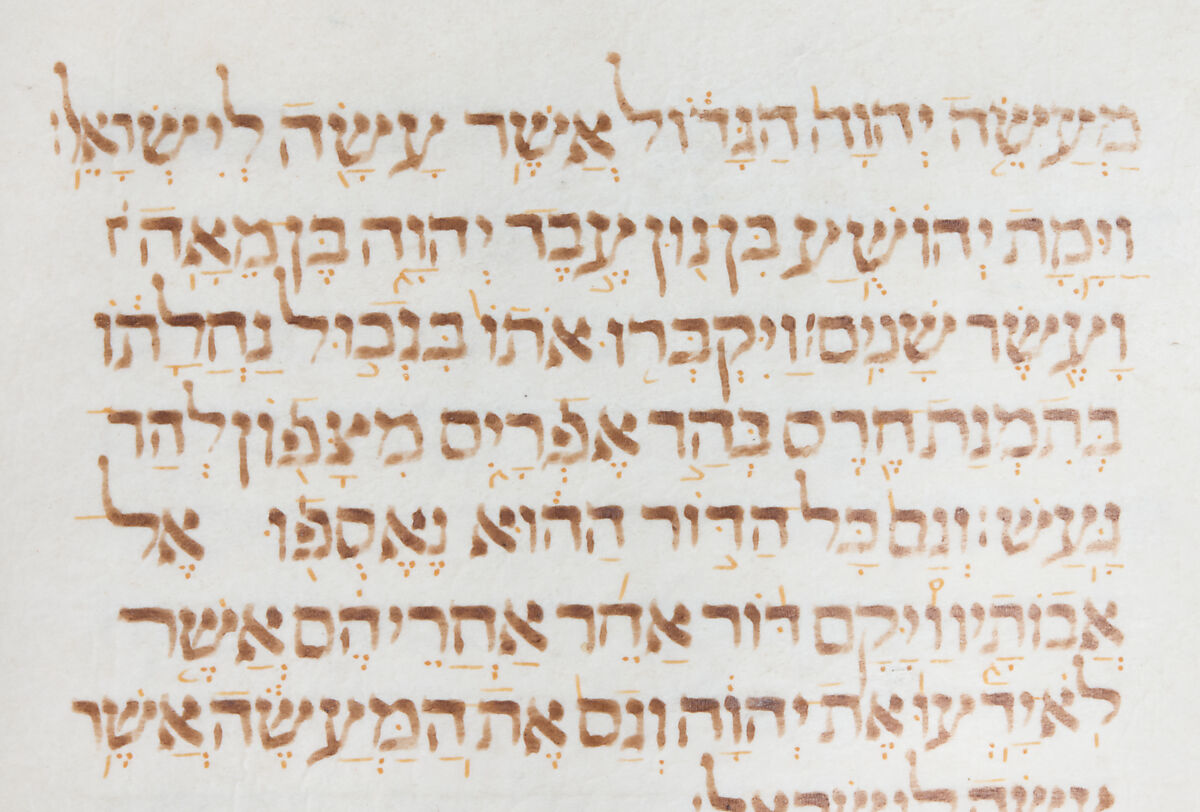 מַעֲשֵׂה יְהוָה הַגָּדוֹל אֲשֶׁר עָשָׂה לְיִשְׂרָאֵל׃
וַיָּמָת יְהוֹשֻׁעַ בִּן נוּן עֶבֶד יְהוָה בֶּן מֵאָה
וָעֶשֶׂר שָׁנִים׃ וַיִּקְבְּרוּ אֹתוֹ בִּגְבוּל נַחֲלָתוֹ
בְּתִמְנַת חֶרֶס בְּהַר אֶפְרָיִם מִצְּפוֹן לְהַר
גָּעַשׁ׃ וְגַם כָּל הַדּוֹר הַהוּא נֶאֶסְפוּ אֶל
אֲבוֹתָיו וַיָּקָם דּוֹר אַחֵר אַחֲרֵיהֶם אֲשֶׁר
לֹא יָדְעוּ אֶת יְהוָה וְגַם אֶת הַמַּעֲשֶׂה אֲשֶׁר
עשה לישראל׃